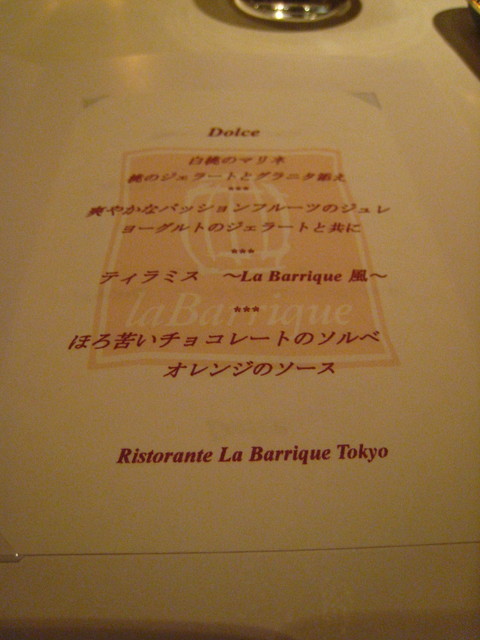 Dolce
白桃のマリネ
桃のジェラートとグラニタ添え
***
爽やかなパッションフルーツのジュレ
ヨーグルトのジェラートと共に
***
ティラミス　～La Barrique 風～
***
laBarrique
ほろ苦いチョコレートのソルベ
オレンジのソース
Ristorante La Barrique Tokyo